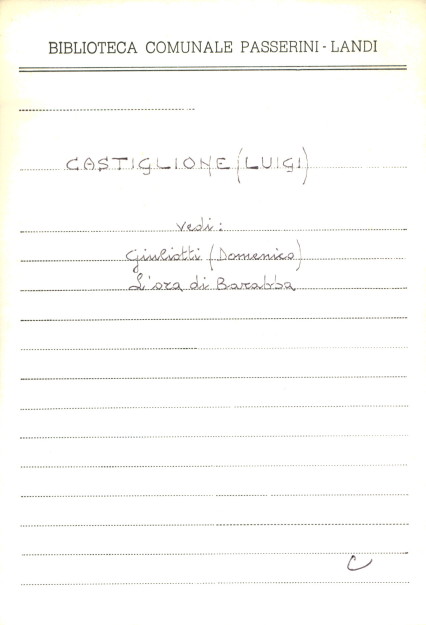 BIBLIOTECA COMUNALE PASSERINI - LANDI
CASTIGLIONE (LUIGI)
vedi:
Giuliotti (Domenico)
L'ora di Barabba
C